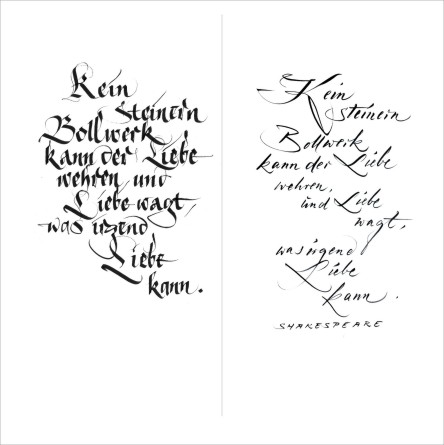 Kein
steinern
Bollwerk
kann der Liebe
wehren und
Liebe wagt,
was irgend
Liebe
kann.
Kein
steinern
Bollwerk
kann der Liebe
wehren,
und Liebe
wagt,
was irgend
Liebe
kann.
SHAKESPEARE